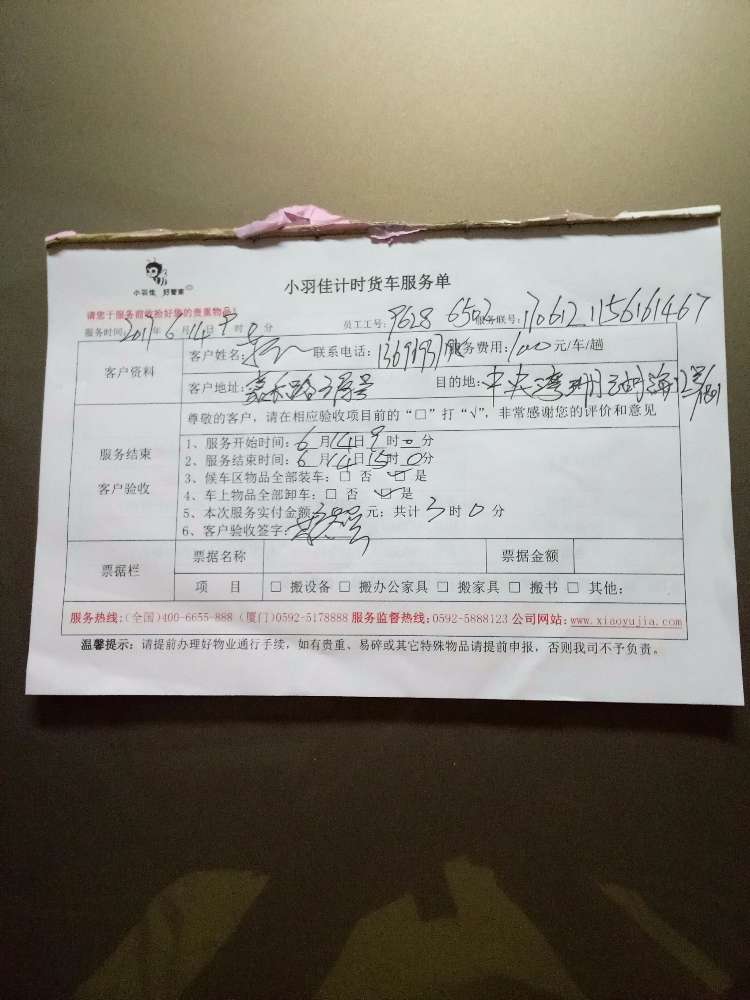 小羽佳 好管家
小羽佳计时货车服务单
请您于服务前收捡好您的贵重物品!
服务时间: 2017年6月14日9时 分 员工工号: 9628 6502 服务联号: 1706121156161467
客户资料
客户姓名: 联系电话: 服务费用: 100元/车/趟
客户地址: 目的地: 中央湾
服务结束
客户验收
尊敬的客户,请在相应验收项目前的“□”打“√”,非常感谢您的评价和意见
1、服务开始时间: 6月14日9时0分
2、服务结束时间: 6月14日15时0分
3、候车区物品全部装车: □ 否 ☑ 是
4、车上物品全部卸车: □ 否 ☑ 是
5、本次服务实付金额: 元: 共计3时0分
6、客户验收签字:
票据栏
票据名称 票据金额
项 目 □ 搬设备 □ 搬办公家具 □ 搬家具 □ 搬书 □ 其他:
服务热线:(全国)400-6655-888 (厦门)0592-5178888 服务监督热线:0592-5888123 公司网站:www.xiaoyujia.com
温馨提示:请提前办理好物业通行手续,如有贵重、易碎或其它特殊物品请提前申报,否则我司不予负责。